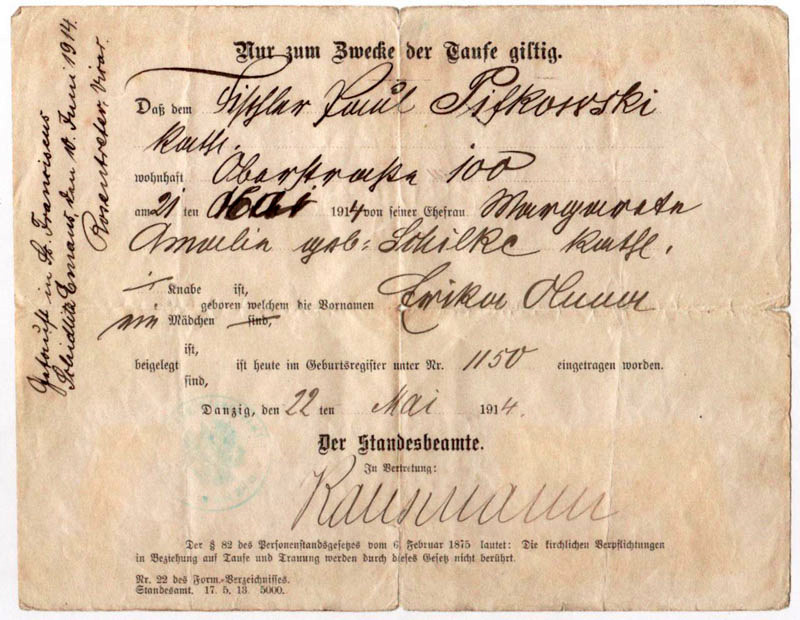 Nur zum Zwecke der Taufe giltig.
Daß dem Tischler Paul Pifkowski
kath.
wohnhaft Oberstraße 100
am 21 ten Mai 1914 von seiner Ehefrau Margarete
Amalie geb. Schilke kath.
Knabe ist,
geboren welchem die Vornamen Erika Anna
ein Mädchen sind,
ist,
beigelegt ist heute im Geburtsregister unter Nr. 1150 eingetragen worden.
sind,
Danzig, den 22 ten Mai 1914.
Der Standesbeamte.
In Vertretung:
Der § 82 des Personenstandsgesetzes vom 6. Februar 1875 lautet: Die kirchlichen Verpflichtungen
in Beziehung auf Taufe und Trauung werden durch dieses Gesetz nicht berührt.
Nr. 22 des Form.-Verzeichnisses.
Standesamt. 17. 5. 13. 5000.
Getauft in St. Franciscus
Schidlitz Emaus, den 10. Juni 1914.
Rosentreter, Vikar.